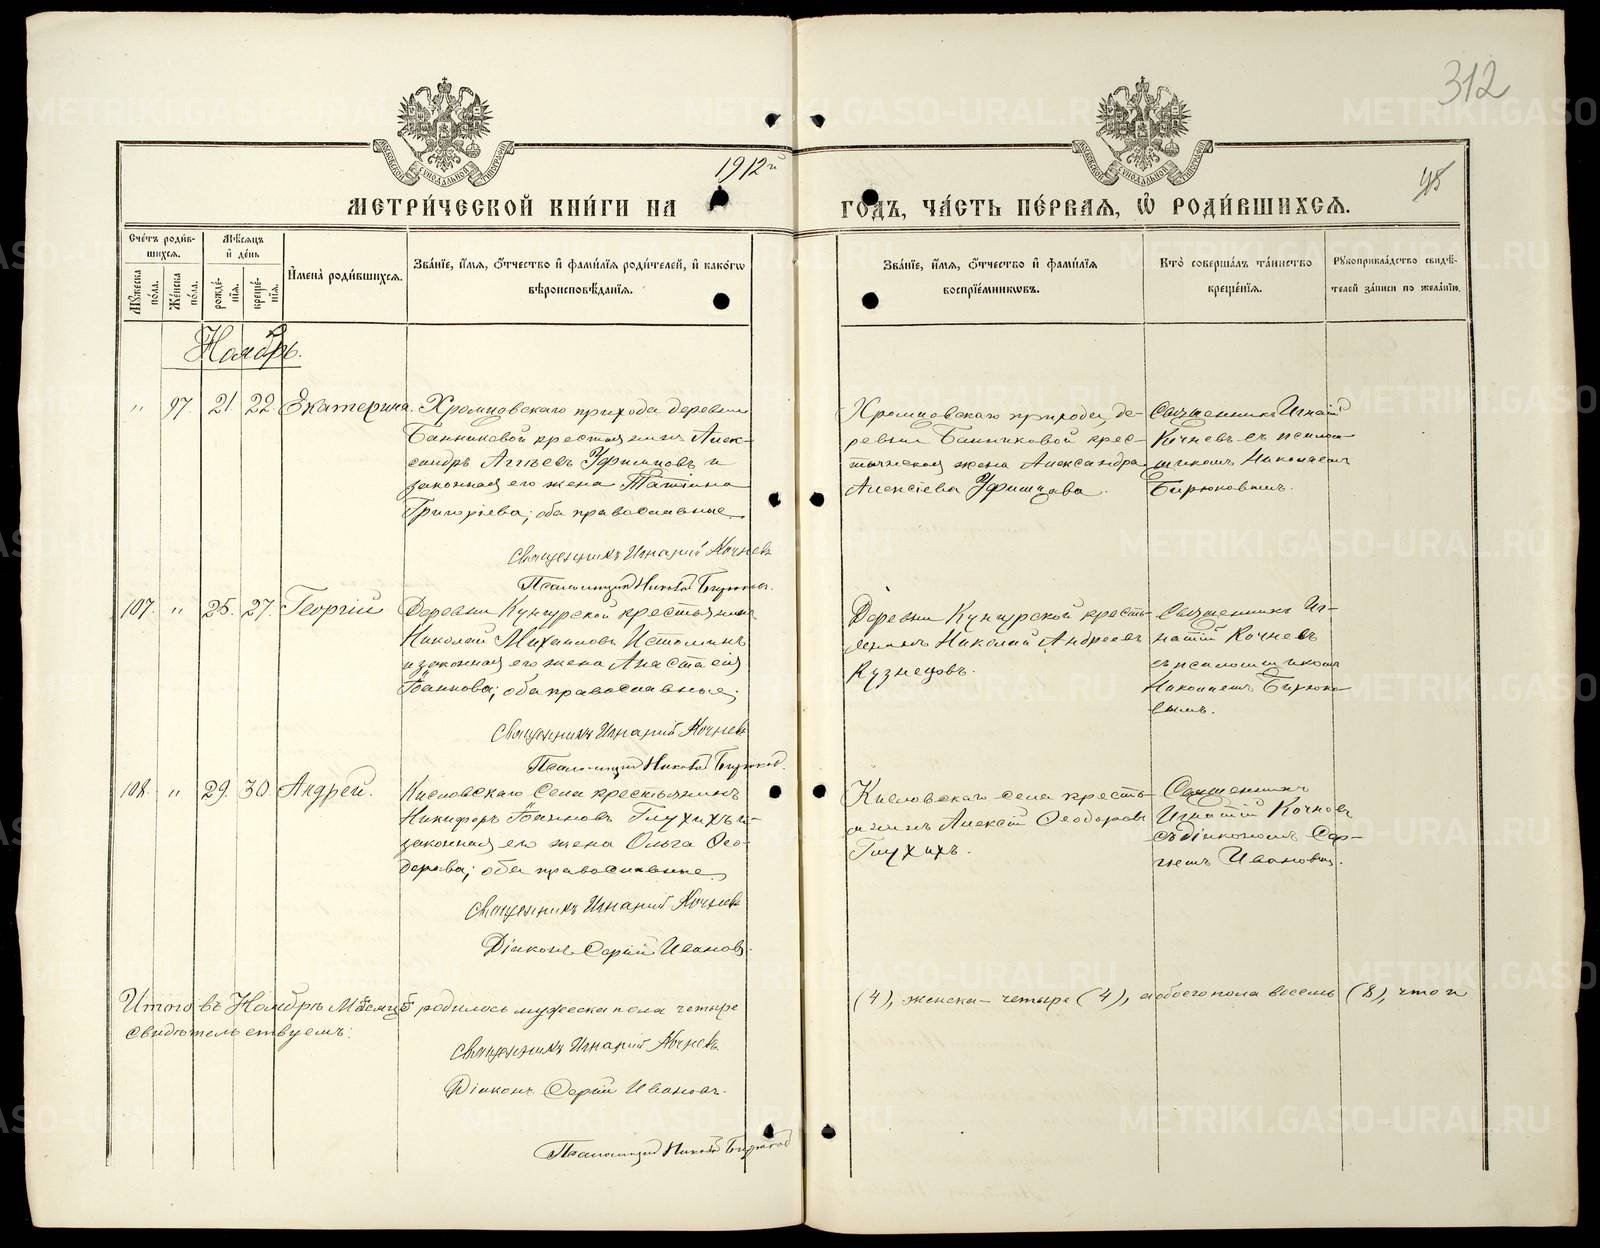 312
45
1912й
МЕТРИ́ЧЕСКОЙ КНИ́ГИ НА
ГО́ДЪ, ЧА́СТЬ ПЕ́РВАЯ, Ѡ РОДИ́ВШИХСЯ.
Сче́тъ роди́в-
шихся.
Мѣ́сяцъ
и де́нь
Мꙋ́жеска по́ла.
Же́нска по́ла.
рожде́-
нїя.
креще́-
нїя.
И҆мена̀ роди́вшихся.
Зва́нїе, и҆́мя, ѻ҆́тчество и҆ фами́лїя роди́телей, и҆ како́гѡ
вѣроисповѣ́данїя.
Зва́нїе, и҆́мя, ѻ҆́тчество и҆ фами́лїя
воспрїе́мниковъ.
Кто̀ соверша́лъ та́инство
креще́нїя.
Рꙋкоприкла́дство свидѣ́-
телей за́писи по жела́нїю.
Ноябрь.
" 97. 21. 22. Екатерина.
Хромцовскаго прихода деревни
Банниковой крестьянинъ Алек-
сандръ Уфимцовъ и
законная его жена Татiана
Григорiева; оба православные.
Священникъ Игнатiй Кочневъ
Псаломщикъ Николай Бирюковъ.
Хромцовскаго прихода, де-
ревни Банниковой крес-
тьянская жена Александра
Алексiева Уфимцава.
Священникъ Игнатiй
Кочневъ съ псалом-
щикомъ Николаемъ
Бирюковымъ.
107. " 25. 27. Георгiй
Деревни Кунгурской крестьянинъ
Николай Михаиловъ Истоминъ
и законная его жена Анастасiя
Iоаннова; оба православные.
Священникъ Игнатiй Кочневъ
Псаломщикъ Николай Бирюков.
Деревни Кунгурской кресть-
янинъ Николай Андреевъ
Кузнецовъ.
Священникъ Иг-
натiй Кочневъ
съ псаломщикомъ
Николаемъ Бирюко-
вымъ.
108. " 29. 30. Андрей.
Кисловскаго Села крестьянинъ
Никифоръ Iоанновъ Глухихъ и
законная его жена Ольга Өео-
дорова; оба православные
Священникъ Игнатiй Кочневъ
Дiаконъ Сергiй Ивановъ.
Кисловскаго села кресть-
янинъ Алексiй Өеодоровъ
Глухихъ.
Священникъ
Игнатiй Кочневъ
съ дiакономъ Сер-
гiемъ Ивановым.
Итого въ Ноябрѣ Мѣсяцѣ родилось мужеска пола четыре
(4), женска - четыре (4), а обоего пола восемь (8), что и
свидѣтельствуемъ:
Священникъ Игнатiй Кочневъ
Дiаконъ Сергiй Ивановъ.
Псаломщикъ Николай Бирюков